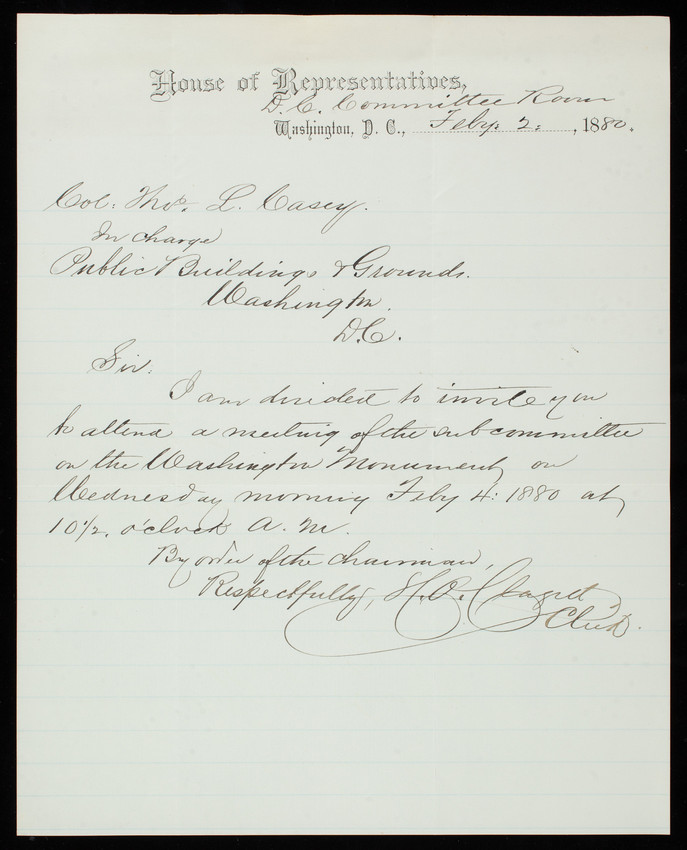 House of Representatives,
D. C. Committee Room
Washington, D. C., Feby. 2: , 1880.
Col: Thos. L. Casey.
In charge
Public Buildings & Grounds.
Washington.
D.C.
Sir:
I am directed to invite you
to attend a meeting of the subcommittee
on the Washington Monument, on
Wednesday morning Feby 4: 1880 at
10 1/2. o'clock A. M.
By order of the chairman,
Respectfully, H.
Clerk.